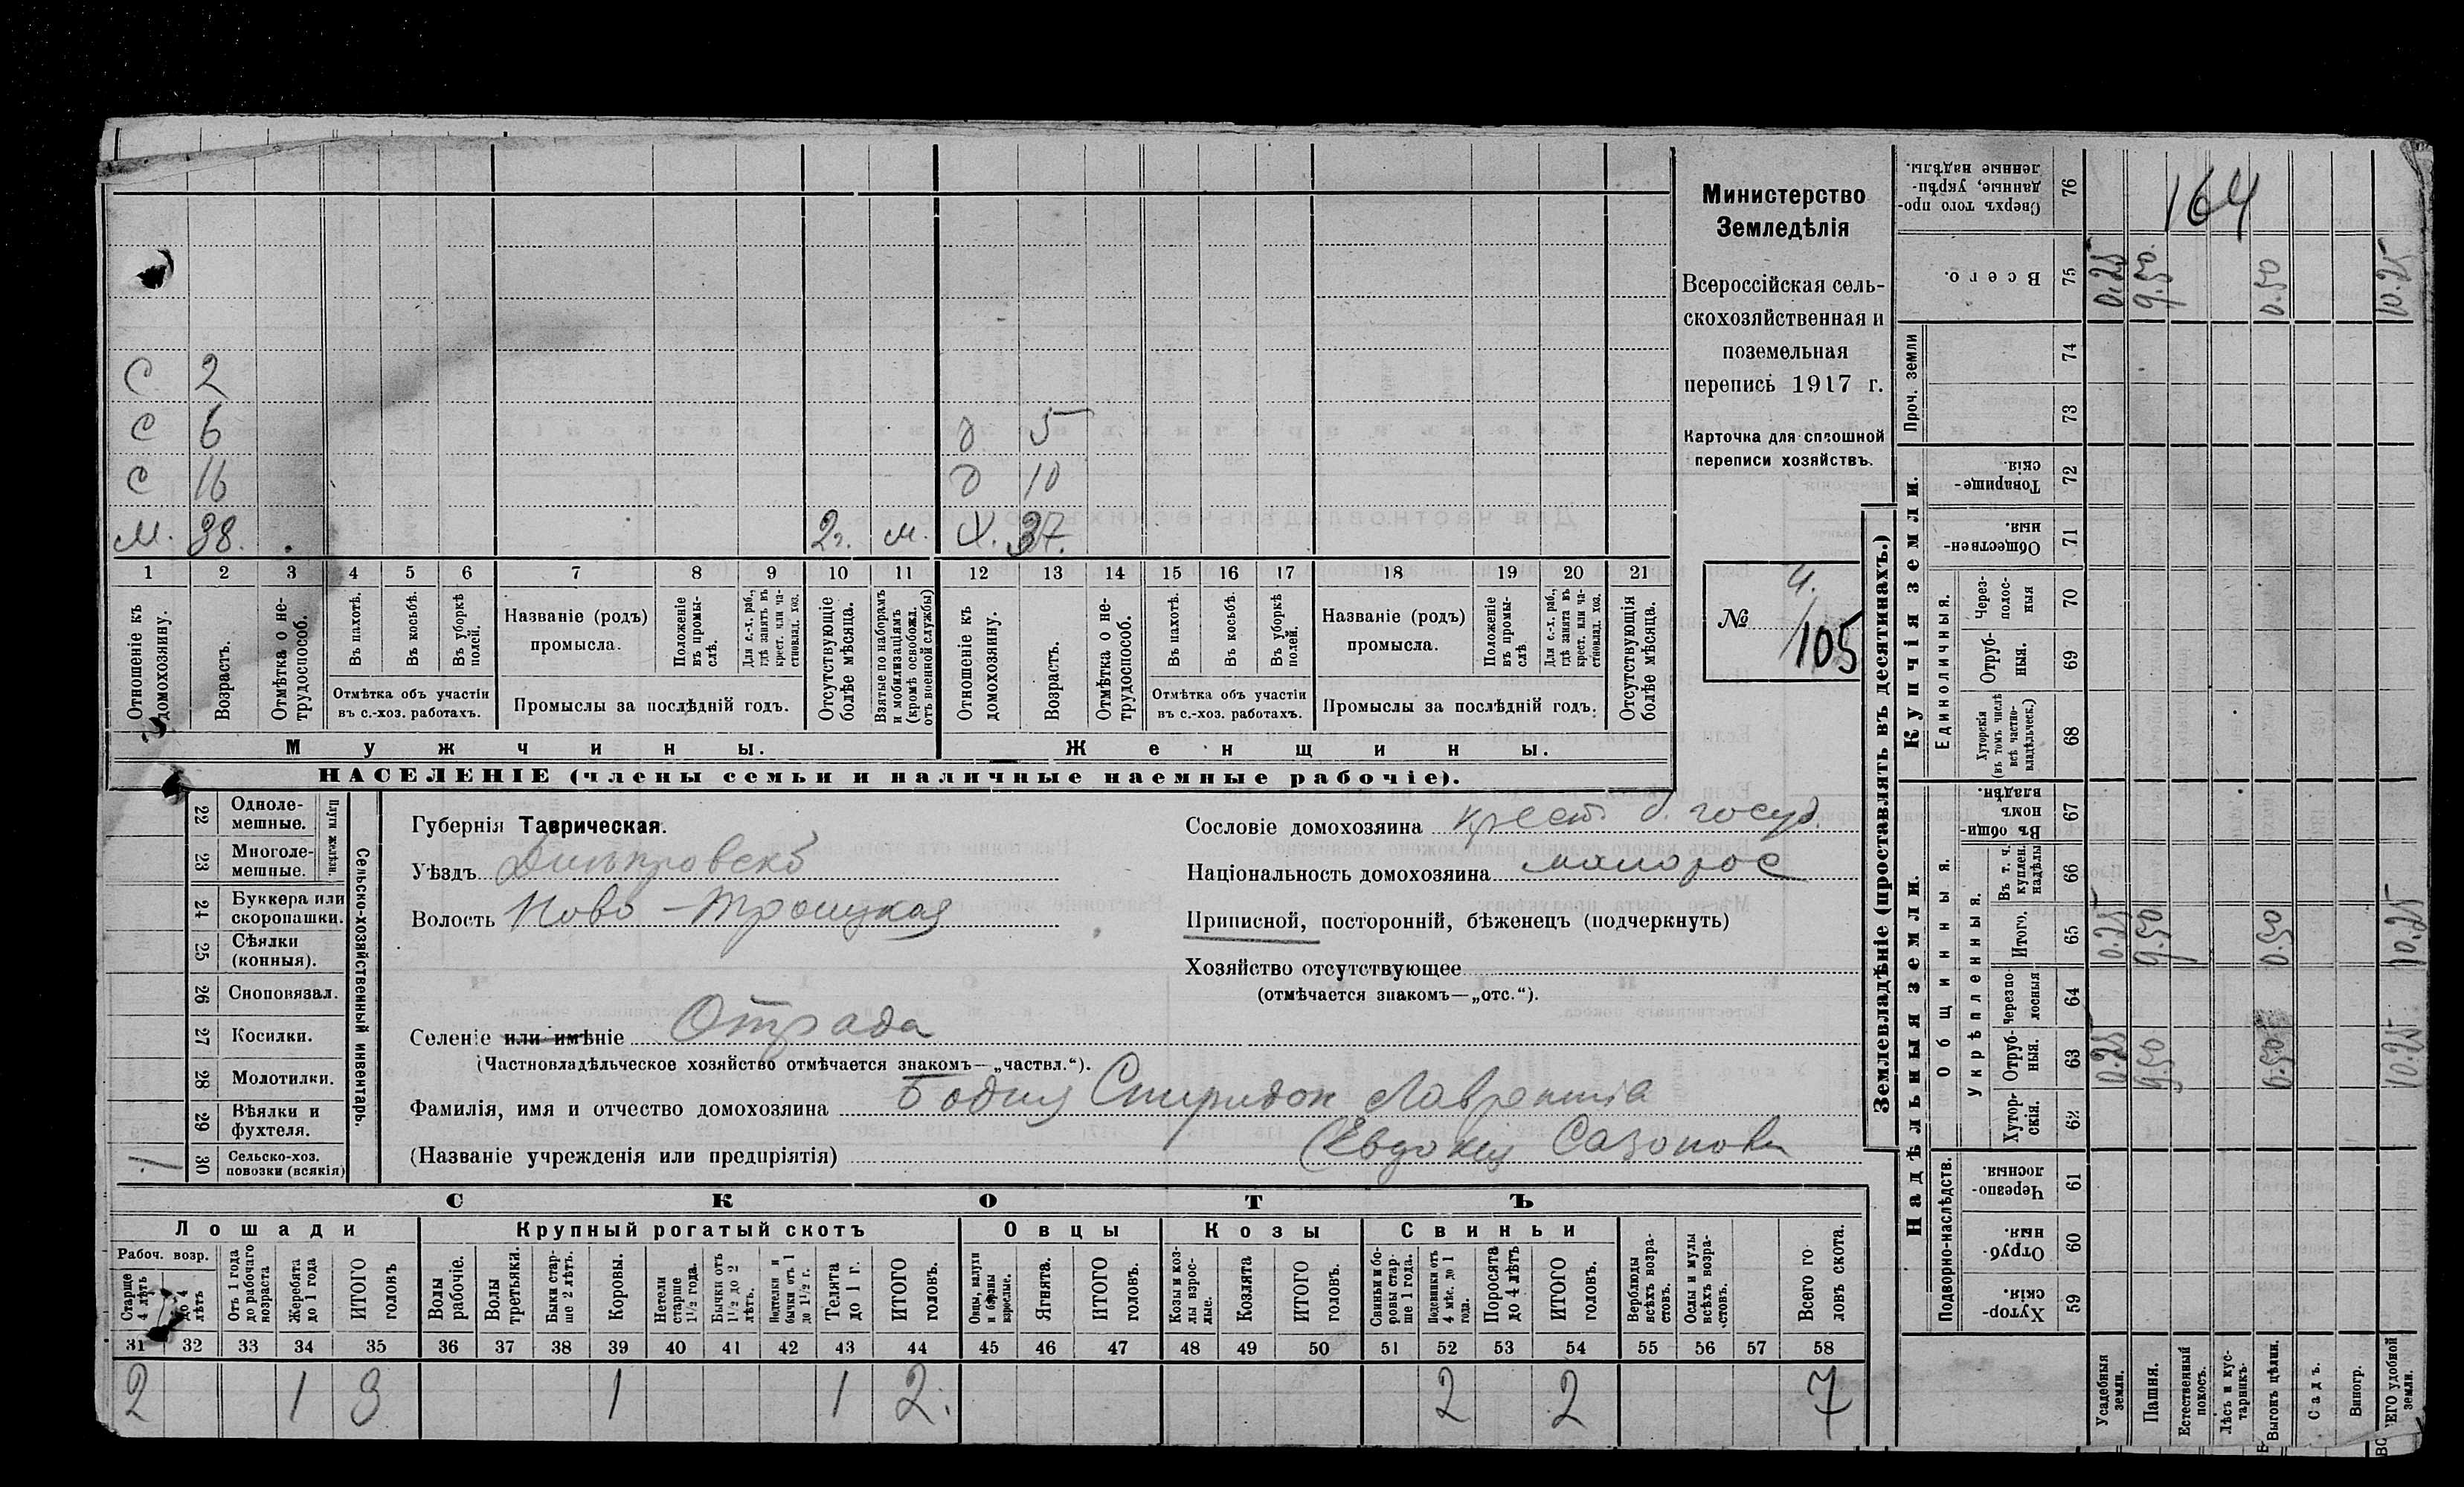 С 2
С 6 д 5
С 16 д 10
М. 38. 2г. м. Х. 37.
1 2 3 4 5 6 7 8 9 10 11 12 13 14 15 16 17 18 19 20 21
Отношеніе къ домохозяину.
Возрастъ.
Отмѣтка о нетрудоспособ.
Въ пахотѣ.
Въ косьбѣ.
Въ уборкѣ полей.
Отмѣтка объ участіи въ с.-хоз. работахъ.
Названіе (родъ) промысла.
Положеніе въ промыслѣ.
Для с.-х. раб., гдѣ занятъ въ крест. или частновлад. хоз.
Промыслы за послѣдній годъ.
Отсутствующіе болѣе мѣсяца.
Взятые по наборамъ и мобилизаціямъ (кромѣ освобожд. отъ военной службы)
Отношеніе къ домохозяину.
Возрастъ.
Отмѣтка о нетрудоспособ.
Въ пахотѣ.
Въ косьбѣ.
Въ уборкѣ полей.
Отмѣтка объ участіи въ с.-хоз. работахъ.
Названіе (родъ) промысла.
Положеніе въ промыслѣ
Для с.-х. раб., гдѣ занята въ крест. или частновлад. хоз.
Промыслы за послѣдній годъ.
Отсутствующія болѣе мѣсяца.
Мужчины. Женщины.
НАСЕЛЕНІЕ (члены семьи и наличные наемные рабочіе).
Министерство
Земледѣлія
Всероссійская сель-
скохозяйственная и
поземельная
перепись 1917 г.
Карточка для сплошной
переписи хозяйствъ.
№ 105
Сельско-хозяйственный инвентарь.
Плуги желѣзн.
22 Одноле-
мешные.
23 Многоле-
мешные.
24 Буккера или
скоропашки.
25 Сѣялки
(конныя).
26 Сноповязал.
27 Косилки.
28 Молотилки.
29 Вѣялки и
фухтеля.
30 Сельско-хоз.
повозки (всякія)
1
Губернія Таврическая.
Уѣздъ Днѣпровскъ
Волость Ново-Троицкая
Селеніе или имѣніе Отрада
(Частновладѣльческое хозяйство отмѣчается знакомъ—„частвл.“).
Фамилія, имя и отчество домохозяина Бодня Спиридон Лаврентіа
(Названіе учрежденія или предпріятія) (Евдокия Сазонова
Сословіе домохозяина крест. б. госуд.
Національность домохозяина малорос
Приписной, посторонній, бѣженецъ (подчеркнуть)
Хозяйство отсутствующее
(отмѣчается знакомъ—„отс.“).
СКОТЪ
Лошади Крупный рогатый скотъ Овцы Козы Свиньи
Рабоч. возр.
Старше 4 лѣтъ
до 4 лѣтъ
Отъ 1 года до рабочаго возраста
Жеребята до 1 года
ИТОГО головъ
Волы рабочіе.
Волы третьяки.
Быки старше 2 лѣтъ.
Коровы.
Нетели старше 1½ года.
Бычки отъ 1½ до 2 лѣтъ.
Подтелки и бычки отъ 1 до 1½ г.
Телята до 1 г.
ИТОГО головъ.
Овцы, валухи и бараны взрослые.
Ягнята.
ИТОГО головъ.
Козы и козлы взрослые.
Козлята
ИТОГО головъ.
Свиньи и боровы старше 1 года.
Подсвинки отъ 4 мѣс. до 1 года.
Поросята до 4 лѣтъ
ИТОГО головъ.
Верблюды всѣхъ возрастовъ.
Ослы и мулы всѣхъ возрастовъ.
Всего головъ скота.
31 32 33 34 35 36 37 38 39 40 41 42 43 44 45 46 47 48 49 50 51 52 53 54 55 56 57 58
2 1 3 1 1 2. 2 2 7
Землевладѣніе (проставлять въ десятинахъ.)
Купчія земли.
Надѣльныя земли.
164
Сверхъ того проданные, укрѣпленные надѣлы. 76
Всего. 75 0.25 9.50. 0.50 10.25
Проч. земли
74
73
Товарищескія. 72
Обществен-ныя. 71
Единоличныя.
Черезполосныя 70
Отрубныя. 69
Хуторскія (въ томъ числѣ всѣ частновладѣльческ.) 68
Общинныя.
Въ общинномъ владѣн. 67
Укрѣпленныя.
Въ т. ч. куплен. надѣлы 66
Итого. 65 0.25 9.50 0.50 10.25
Черезполосныя 64
Отрубныя. 63 0.25 9.50 0.50 10.25
Хуторскія. 62
Подворно-наслѣдств.
Черезполосныя. 61
Отрубныя. 60
Хуторскія. 59
Усадебныя земли.
Пашня.
Естественный покосъ.
Лѣсъ и кустарникъ.
Выгонъ цѣлин.
Садъ.
Виногр.
ВСЕГО удобной земли.